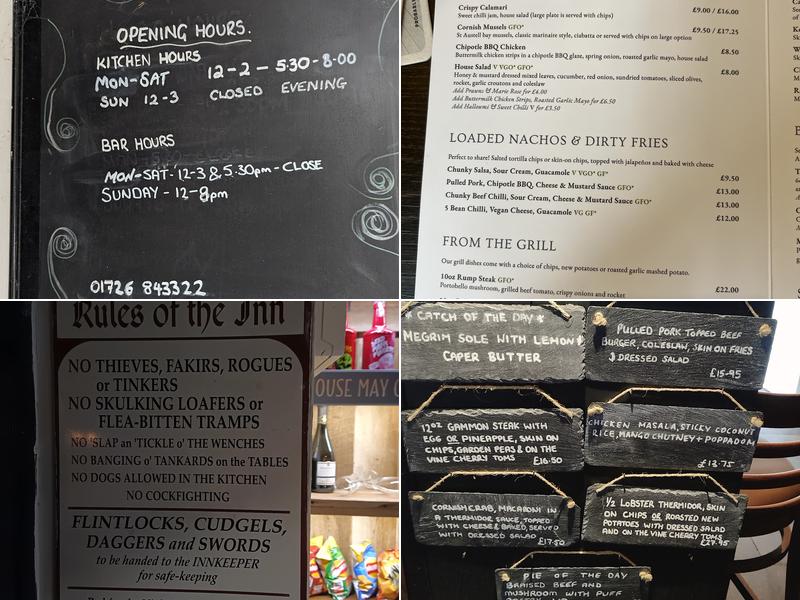 OPENING HOURS.
KITCHEN HOURS
MON-SAT 12-2 - 5:30-8:00
SUN 12-3 CLOSED EVENING
BAR HOURS
MON-SAT-12-3 & 5.30pm-CLOSE
SUNDAY - 12-8pm
01726 843322
Crispy Calamari £9.00 / £16.00
Sweet chilli jam, house salad (large plate is served with chips)
Cornish Mussels GFO* £9.50 / £17.25
St Austell bay mussels, classic marinaire style, ciabatta or served with chips on large option
Chipotle BBQ Chicken £8.50
Buttermilk chicken strips in a chipotle BBQ glaze, spring onion, roasted garlic mayo, house salad
House Salad V VGO* GFO* £8.00
Honey & mustard dressed mixed leaves, cucumber, red onion, sundried tomatoes, sliced olives,
rocket, garlic croutons and coleslaw
Add Prawns & Marie Rose for £6.00
Add Buttermilk Chicken Strips, Roasted Garlic Mayo for £6.50
Add Halloumi & Sweet Chilli V for £3.50
LOADED NACHOS & DIRTY FRIES
Perfect to share! Salted tortilla chips or skin-on chips, topped with jalapeños and baked with cheese
Chunky Salsa, Sour Cream, Guacamole V VGO* GF* £9.50
Pulled Pork, Chipotle BBQ, Cheese & Mustard Sauce GFO* £13.00
Chunky Beef Chilli, Sour Cream, Cheese & Mustard Sauce GFO* £13.00
5 Bean Chilli, Vegan Cheese, Guacamole VG GF* £12.00
FROM THE GRILL
Our grill dishes come with a choice of chips, new potatoes or roasted garlic mashed potato.
10oz Rump Steak GFO* £22.00
Portobello mushroom, grilled beef tomato, crispy onions and rocket
Rules of the Inn
NO THIEVES, FAKIRS, ROGUES
or TINKERS
NO SKULKING LOAFERS or
FLEA-BITTEN TRAMPS
NO 'SLAP an 'TICKLE o' THE WENCHES
NO BANGING o' TANKARDS on the TABLES
NO DOGS ALLOWED IN THE KITCHEN
NO COCKFIGHTING
FLINTLOCKS, CUDGELS,
DAGGERS and SWORDS
to be handed to the INNKEEPER
for safe-keeping
OUSE MAY
CATCH OF THE DAY
MEGRIM SOLE WITH LEMON &
CAPER BUTTER
PULLED PORK TOPPED BEEF
BURGER, COLESLAW, SKIN ON FRIES
& DRESSED SALAD
£15-95
12oz GAMMON STEAK WITH
EGG OR PINEAPPLE, SKIN ON
CHIPS, GARDEN PEAS & ON THE
VINE CHERRY TOMS £16.50
CHICKEN MASALA, STICKY COCONUT
RICE, MANGO CHUTNEY + POPPADOM
£13.75
CORNISH CRAB, MACARONI IN
A THERMIDOR SAUCE, TOPPED
WITH CHEESE & BAKED, SERVED
WITH DRESSED SALAD £17.50
1/2 LOBSTER THERMIDOR, SKIN
ON CHIPS OR ROASTED NEW
POTATOES WITH DRESSED SALAD
AND ON THE VINE CHERRY TOMS
£27.95
PIE OF THE DAY
BRAISED BEEF AND
MUSHROOM WITH PUFF